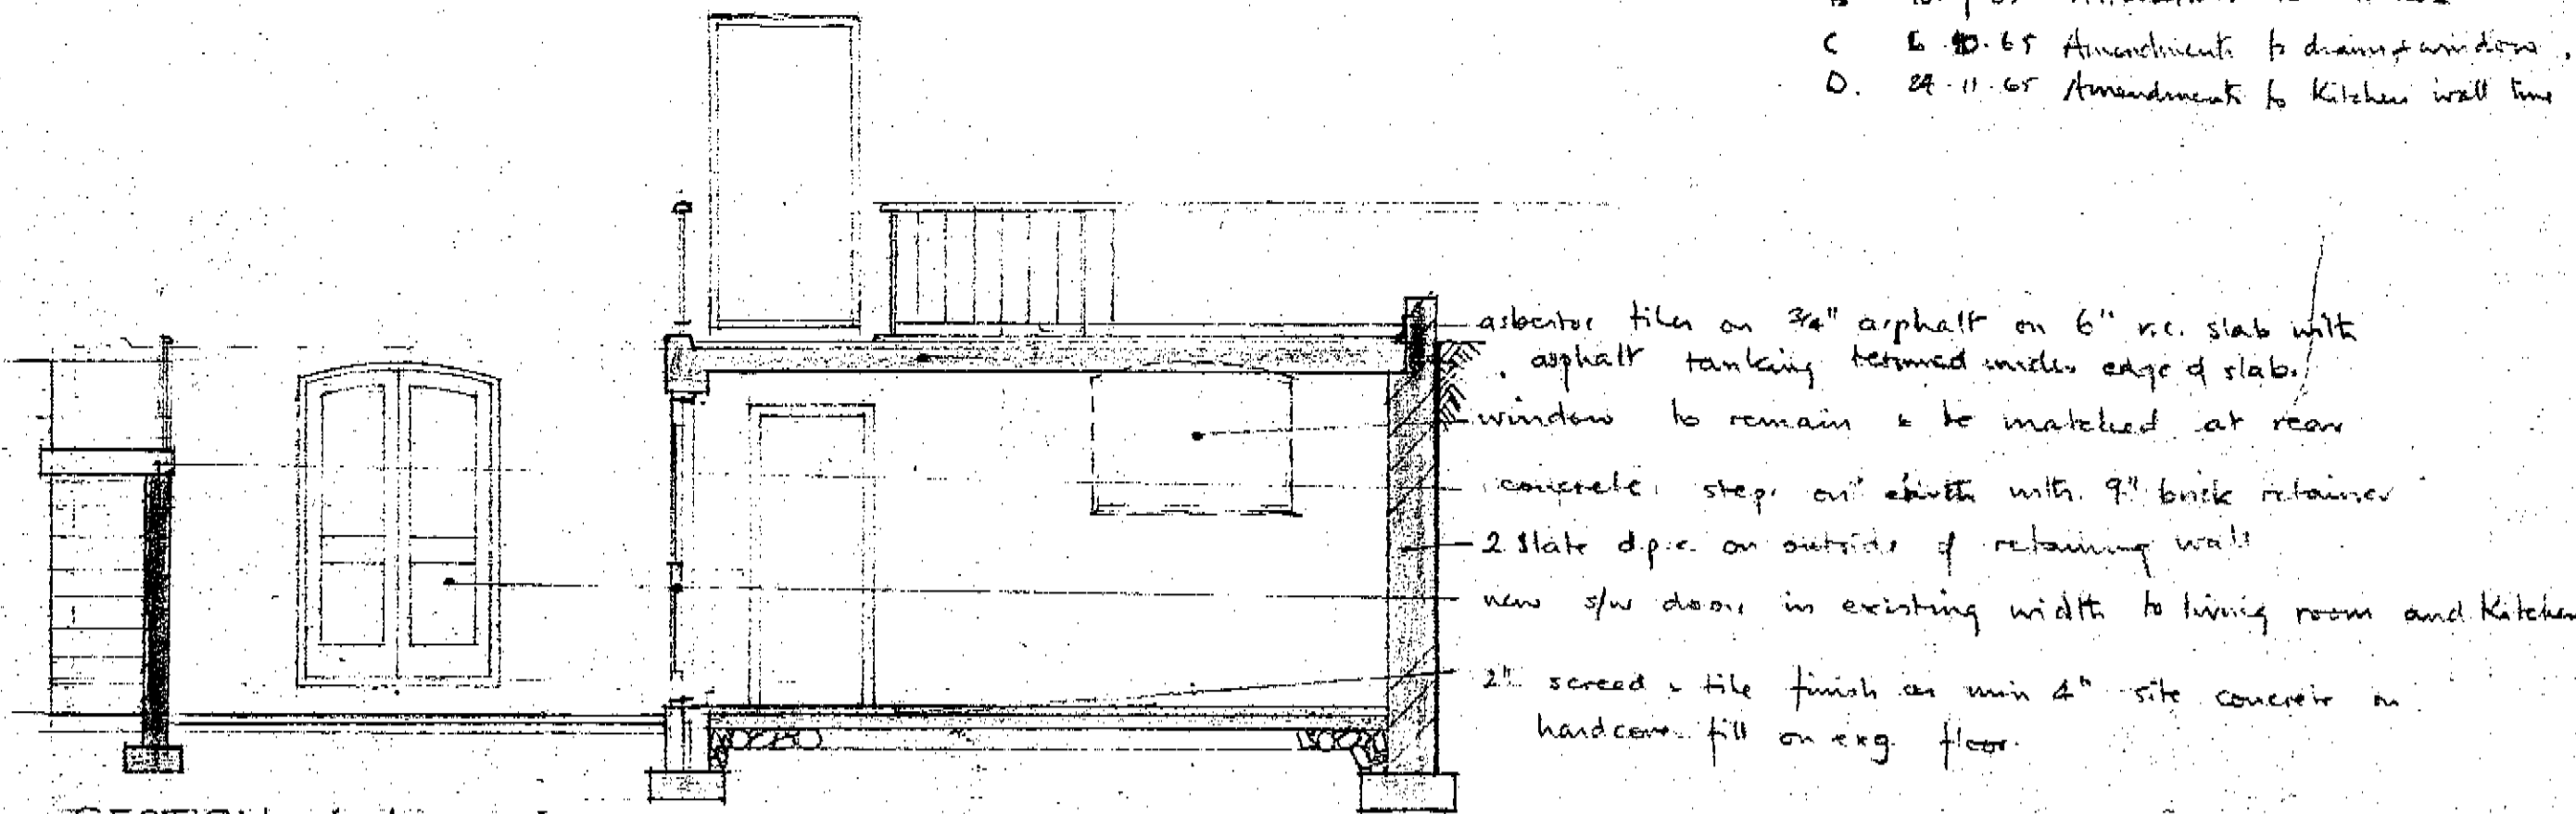 C 6.10.65 Amendments to drains & window.
D. 24.11.65 Amendments to Kitchen wall line
asbestos tiles on 3/4" asphalt on 6" r.c. slab with
asphalt tanking returned under edge of slab.
window to remain & be matched at rear
concrete steps on earth with 9" brick retainer
2 slate d.p.c. on outside of retaining wall
new s/w doors in existing width to living room and Kitchen
2" screed & tile finish on min 4" site concrete on
hardcore fill on exg. floor.
SECTION